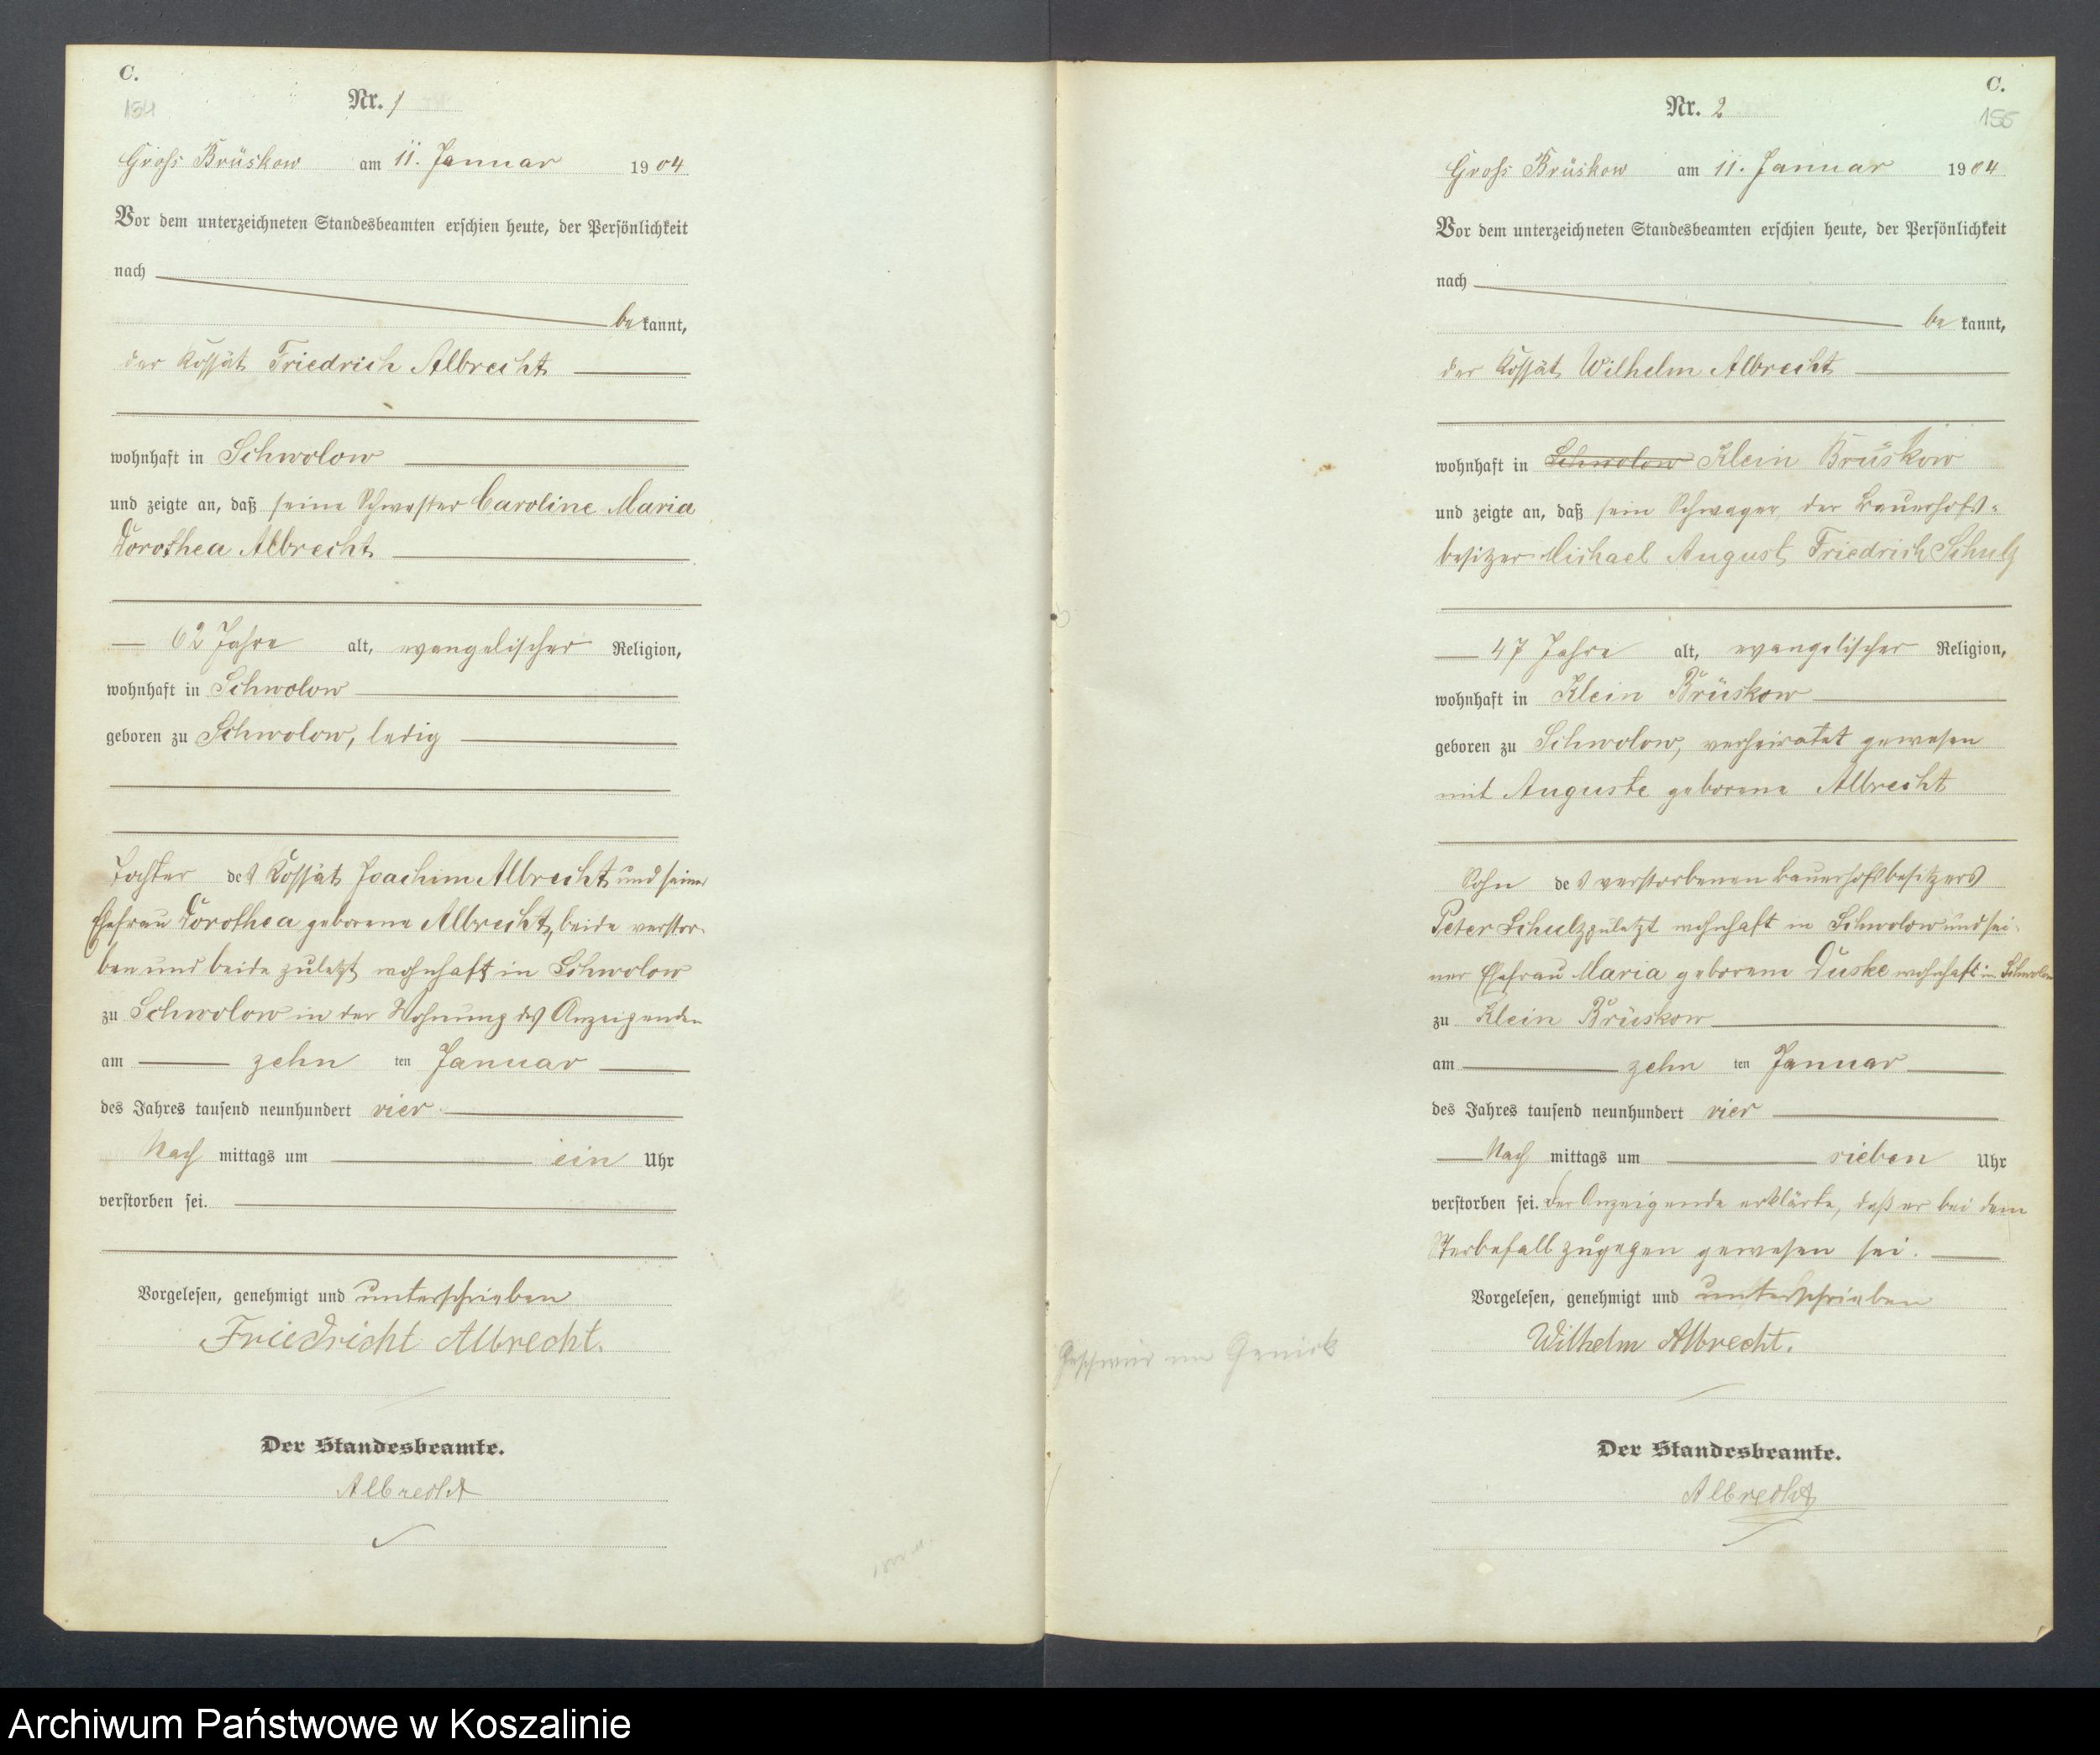 C.
154
Nr. 1
Groß Brüskow am 11. Januar 1904
Vor dem unterzeichneten Standesbeamten erschien heute, der Persönlichkeit
nach
be kannt,
der Kossät Friedrich Albrecht
wohnhaft in Schwolow
und zeigte an, daß seine Schwester Caroline Maria
Dorothea Albrecht
62 Jahre alt, evangelischer Religion,
wohnhaft in Schwolow
geboren zu Schwolow, ledig
Tochter des Kossät Joachim Albrecht und seiner
Ehefrau Dorothea geborene Albrecht, beide verstor-
ben und beide zuletzt wohnhaft in Schwolow
zu Schwolow in der Wohnung des Anzeigenden
am zehn ten Januar
des Jahres tausend neunhundert vier
Nach mittags um ein Uhr
verstorben sei.
Vorgelesen, genehmigt und unterschrieben
Friedricht Albrecht.
Der Standesbeamte.
Albrecht
C.
155
Nr. 2
Groß Brüskow am 11. Januar 1904
Vor dem unterzeichneten Standesbeamten erschien heute, der Persönlichkeit
nach
be kannt,
der Kossät Wilhelm Albrecht
wohnhaft in Schwolow Klein Brüskow
und zeigte an, daß sein Schwager, der Bauerhofs-
besitzer Michael August Friedrich Schulz
47 Jahre alt, evangelischer Religion,
wohnhaft in Klein Brüskow
geboren zu Schwolow, verheiratet gewesen
mit Auguste geborene Albrecht
Sohn des verstorbenen Bauerhofsbesitzers
Peter Schulz zuletzt wohnhaft in Schwolow und sei-
ner Ehefrau Maria geborene Duske wohnhaft in Schwolow
zu Klein Brüskow
am zehn ten Januar
des Jahres tausend neunhundert vier
Nach mittags um sieben Uhr
verstorben sei. Der Anzeigende erklärte, daß er bei dem
Sterbefall zugegen gewesen sei.
Vorgelesen, genehmigt und unterschrieben
Wilhelm Albrecht.
Geschwür im Genick
Der Standesbeamte.
Albrecht
Archiwum Państwowe w Koszalinie